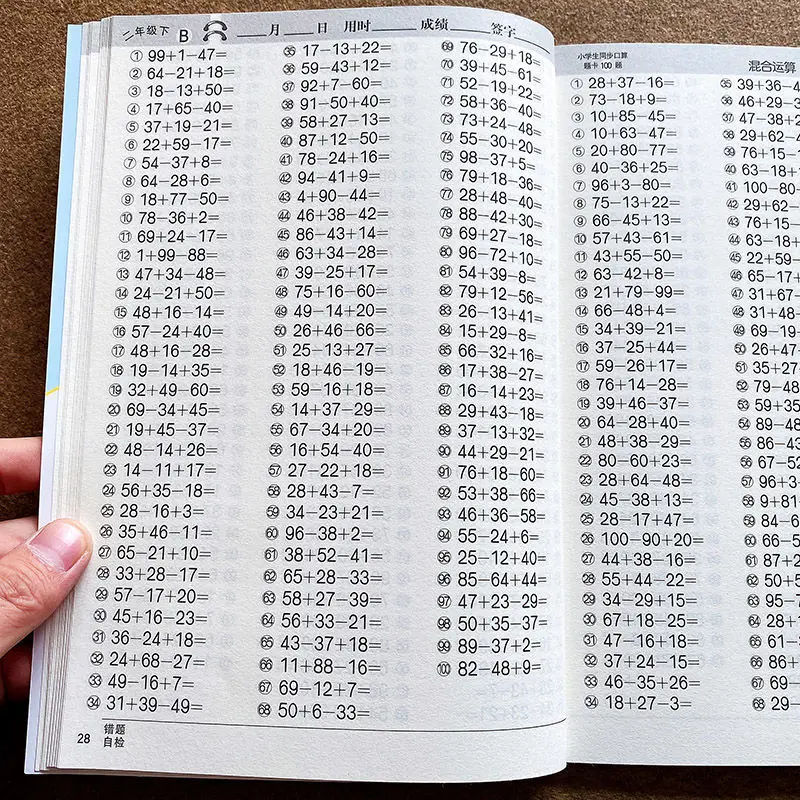 二年级下 B ___月___日 用时___ 成绩___ 签字___
①99+1−47=
②64−21+18=
③18−13+50=
④17+65−40=
⑤37+19−21=
⑥22+59−17=
⑦54−37+8=
⑧64−28+6=
⑨18+77−50=
⑩78−36+2=
⑪69+24−17=
⑫1+99−88=
⑬47+34−48=
⑭24−21+50=
⑮48+16−14=
⑯57−24+40=
⑰48+16−28=
⑱19−14+35=
⑲32+49−60=
⑳69−34+45=
㉑19+45−37=
㉒48−14+26=
㉓14−11+17=
㉔56+35−18=
㉕28−16+3=
㉖35+46−11=
㉗65−21+10=
㉘33+28−17=
㉙57−17+20=
㉚45+16−23=
㉛36−24+18=
㉜24+68−27=
㉝49−16+7=
㉞31+39−49=
㉟17−13+22=
㊱59−43+12=
㊲92+7−60=
㊳91−50+40=
㊴58+27−13=
㊵87+12−50=
㊶78−24+16=
㊷94−41+9=
㊸4+90−44=
㊹46+38−42=
㊺86−43+14=
㊻63+34−28=
㊼39−25+17=
㊽75+16−60=
㊾49−14+20=
㊿26+46−66=
51 25−13+27=
52 18+46−19=
53 59−16+18=
54 14+37−29=
55 67−34+20=
56 16+54−40=
57 27−22+18=
58 28+43−7=
59 34−23+21=
60 96−38+2=
61 38+52−41=
62 65+28−33=
63 58+27−39=
64 56+33−21=
65 43−37+18=
66 11+88−16=
67 69−12+7=
68 50+6−33=
69 76−29+18=
70 39+45−61=
71 52−19+22=
72 58+36−40=
73 73+24−48=
74 55−30+20=
75 98−37+5=
76 79+18−36=
77 28+48−40=
78 88−42+30=
79 69+27−18=
80 96−72+10=
81 54+39−8=
82 79+12−56=
83 26−13+41=
84 15+29−8=
85 66−32+16=
86 17+38−27=
87 16−14+23=
88 29+43−18=
89 37−13+32=
90 44+29−21=
91 76+18−60=
92 53+38−66=
93 46+36−58=
94 55−24+6=
95 25−12+40=
96 85−64+44=
97 47+23−29=
98 50+35−37=
99 89−37+2=
100 82−48+9=
28
错题
自检
小学生同步口算
题卡100题
混合运算
①28+37−16=
②73−18+9=
③10+85−45=
④10+63−47=
⑤20+80−77=
⑥40−36+25=
⑦96+3−80=
⑧75−13+22=
⑨66−45+13=
⑩57+43−61=
⑪43+55−50=
⑫63−42+8=
⑬21+79−99=
⑭66−48+4=
⑮34+39−21=
⑯37−25+44=
⑰59−26+17=
⑱76+14−28=
⑲39+46−37=
⑳64−28+40=
㉑48+38−29=
㉒80−60+23=
㉓28+64−48=
㉔45−38+13=
㉕28−17+47=
㉖100−90+20=
㉗44+38−16=
㉘55+44−22=
㉙34−29+15=
㉚67+18−25=
㉛47−16+18=
㉜37+24−15=
㉝46−35+26=
㉞18+27−3=
㉟39+36−4
㊱46+29−3
㊲47−38+2
㊳29+62−4
㊴76+15−
㊵63−18+
㊶100−80−
㊷29+62−
㊸76+15−
㊹63−18+
㊺22+59−
㊻65−17+
㊼31+67−
㊽31+48−
㊾69−19−
㊿26+47−
51 35+27−
52 79−48
53 59+35
54 89−48
55 86−43
56 67−52
57 96+3−
58 9+81
59 84−6
60 66−5
61 87+
62 50+5
63 95−7
64 28+1
66 86+
67 69−
68 29−